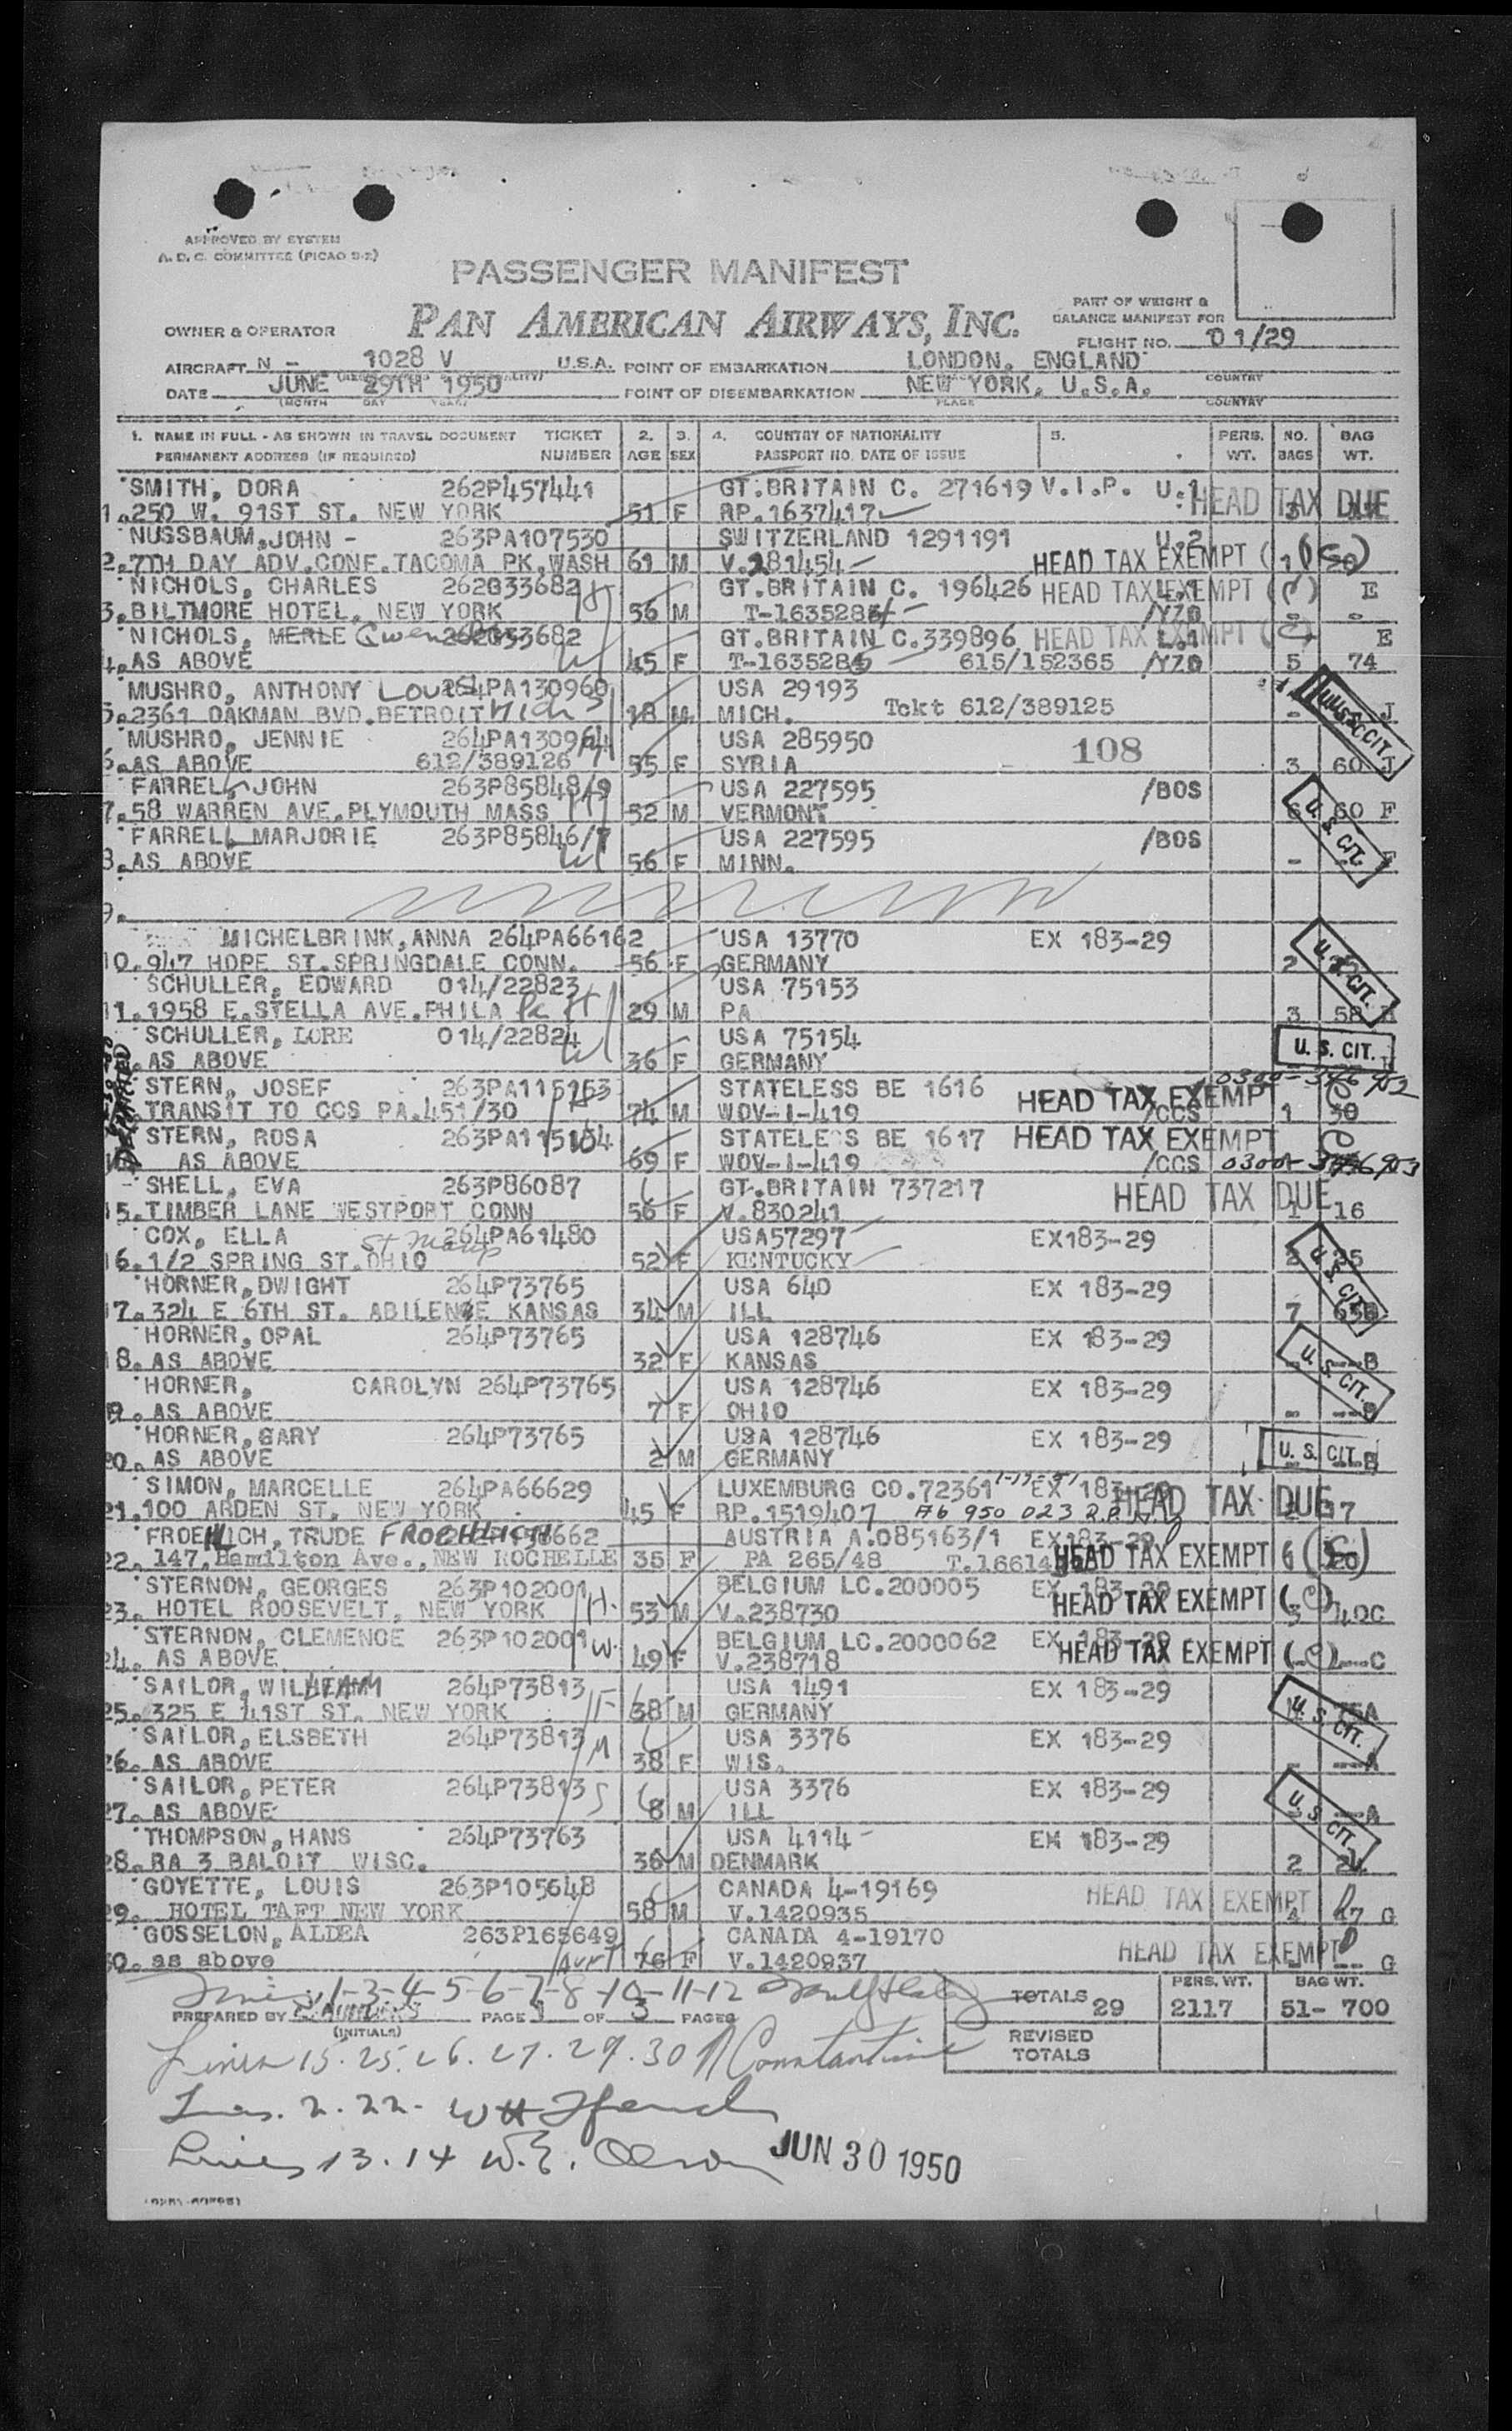 APPROVED BY SYSTEM
A. D. C. COMMITTEE (PICAO 9-2)
PASSENGER MANIFEST
PAN AMERICAN AIRWAYS, INC.
PART OF WEIGHT &
BALANCE MANIFEST FOR
OWNER & OPERATOR
FLIGHT NO. 01/29
AIRCRAFT N - 1028 V U.S.A. POINT OF EMBARKATION LONDON, ENGLAND
COUNTRY
DATE JUNE 29TH 1950 POINT OF DISEMBARKATION NEW YORK, U.S.A.
(MONTH DAY YEAR) PLACE COUNTRY
1. NAME IN FULL - AS SHOWN IN TRAVEL DOCUMENT TICKET 2. 3. 4. COUNTRY OF NATIONALITY 5. PERS. NO. BAG
PERMANENT ADDRESS (IF REQUIRED) NUMBER AGE SEX PASSPORT NO. DATE OF ISSUE WT. BAGS WT.
SMITH, DORA 262P457441 GT.BRITAIN C. 271619 V.I.P. U.1 HEAD TAX DUE
1. 250 W. 91ST ST. NEW YORK 51 F RP.1637417 3
NUSSBAUM,JOHN - 263PA107530 SWITZERLAND 1291191 U.2
2. 7TH DAY ADV.CONF.TACOMA PK.WASH 61 M V.281454 HEAD TAX EXEMPT 1
NICHOLS, CHARLES 262G33682 H GT.BRITAIN C. 196426 HEAD TAX EXEMPT E
3. BILTMORE HOTEL, NEW YORK 56 M T-1635284 /YZD - -
NICHOLS, MERLE 262G33682 GT.BRITAIN C.339896 HEAD TAX EXEMPT E
4. AS ABOVE W 45 F T-1635285 615/152365 /YZD 5 74
MUSHRO, ANTHONY Louis 264PA130960 USA 29193
5. 2361 OAKMAN BVD.DETROIT Mich S 18 M MICH. Tckt 612/389125 - J
MUSHRO, JENNIE 264PA130964 USA 285950 108 U.S. CIT.
6. AS ABOVE 612/389126 M 55 F SYRIA 3 60 J
FARRELL, JOHN 263P85848/9 USA 227595 /BOS
7. 58 WARREN AVE.PLYMOUTH MASS H 52 M VERMONT 6 60 F
FARRELL MARJORIE 263P85846/7 USA 227595 /BOS U. S. CIT.
8. AS ABOVE W 56 F MINN. - F
9.
MICHELBRINK,ANNA 264PA66162 USA 13770 EX 183-29
10. 947 HOPE ST.SPRINGDALE CONN. 56 F GERMANY 2 U. S. CIT.
SCHULLER, EDWARD 014/22823 USA 75153
11. 1958 E.STELLA AVE.PHILA Pa H 29 M PA 3 58 H
SCHULLER, LORE 014/22824 USA 75154 U. S. CIT.
AS ABOVE W 36 F GERMANY
DEPARTED
STERN, JOSEF 263PA115153 H STATELESS BE 1616 HEAD TAX EXEMP 0300-
TRANSIT TO CCS PA.451/30 74 M WOV-1-419 /CCS 1 30
STERN, ROSA 263PA115154 STATELESS BE 1617 HEAD TAX EXEMPT
AS ABOVE 69 F WOV-1-419 /CCS 0300-
SHELL, EVA 263P86087 GT.BRITAIN 737217 HEAD TAX DUE
15. TIMBER LANE WESTPORT CONN 56 F V.830241 1 16
COX, ELLA 264PA61480 USA57297 EX183-29
16. 1/2 SPRING ST. St Marys OHIO 52 F KENTUCKY 2 25 U. S. CIT.
HORNER,DWIGHT 264P73765 USA 640 EX 183-29
17. 324 E 6TH ST. ABILENE KANSAS 34 M ILL 7 63B
HORNER, OPAL 264P73765 USA 128746 EX 183-29
18. AS ABOVE 32 F KANSAS - --B U. S. CIT.
HORNER, CAROLYN 264P73765 USA 128746 EX 183-29
19. AS ABOVE 7 F OHIO - --B
HORNER,GARY 264P73765 USA 128746 EX 183-29 U. S. CIT.
20. AS ABOVE 2 M GERMANY
SIMON, MARCELLE 264PA66629 LUXEMBURG CO.72361 EX 183-29 HEAD TAX DUE
21. 100 ARDEN ST. NEW YORK 45 F RP.1519407 A6 950 023 17
FROEHLICH, TRUDE FROEHLICH AUSTRIA A.085163/1 EX183-29
22. 147,Hamilton Ave.,NEW ROCHELLE 35 F PA 265/48 HEAD TAX EXEMPT 6 20
STERNON, GEORGES 263P102001 BELGIUM LC.200005 EX 183-29
23. HOTEL ROOSEVELT, NEW YORK H. 53 M V.238730 HEAD TAX EXEMPT 3 40C
STERNON, CLEMENCE 263P102001 BELGIUM LC.2000062 EX 183-29
24. AS ABOVE W. 49 F V.238718 HEAD TAX EXEMPT --C
SAILOR, WILLIAM 264P73813 USA 1491 EX 183-29
25. 325 E 41ST ST. NEW YORK F 38 M GERMANY U. S. CIT.
SAILOR,ELSBETH 264P73813 USA 3376 EX 183-29
26. AS ABOVE M 38 F WIS. - --A
SAILOR,PETER 264P73813 S USA 3376 EX 183-29
27. AS ABOVE 8 M ILL --A U. S. CIT.
THOMPSON,HANS 264P73763 USA 4114 EX 183-29
28. RA 3 BALOIT WISC. 36 M DENMARK 2 24
GOYETTE, LOUIS 263P105648 CANADA 4-19169 HEAD TAX EXEMPT
29. HOTEL TAFT NEW YORK 58 M V.1420935 4 47 G
GOSSELON,ALDEA 263P165649 CANADA 4-19170 HEAD TAX EXEMPT
30. as above AUNT 76 F V.1420937 - -- G
Lines 1-3-4-5-6-7-8-10-11-12
PERS. WT. BAG WT.
TOTALS 29 2117 51- 700
PREPARED BY PAGE 1 OF 3 PAGES
(INITIALS)
REVISED
TOTALS
Lines 15. 25. 26. 27. 29. 30 Constantine
Lines. 2. 22.
Lines 13. 14 W.E. Olson JUN 30 1950